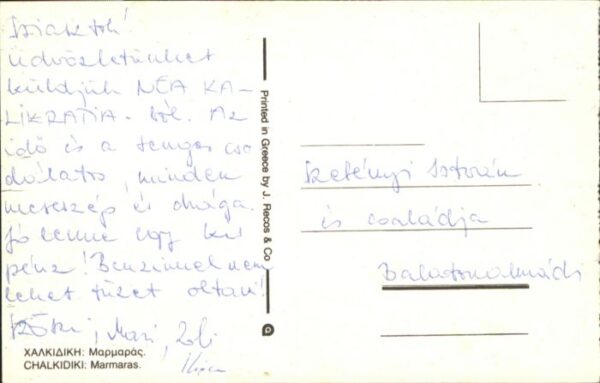 Sziasztok!
Üdvözletünket
küldjük NÉA KA-
LIKRATIA-ból. Az
idő és a tenger cso
dálatos, minden
meseszép és drága.
Jó lenne egy kis
pénz! Benzinnel nem
lehet tüzet oltani!
Mari, Zoli
ΧΑΛΚΙΔΙΚΗ: Μαρμαράς.
CHALKIDIKI: Marmaras.
Printed in Greece by J. Recos & Co
Szetényi István
és családja
Balatonalmádi